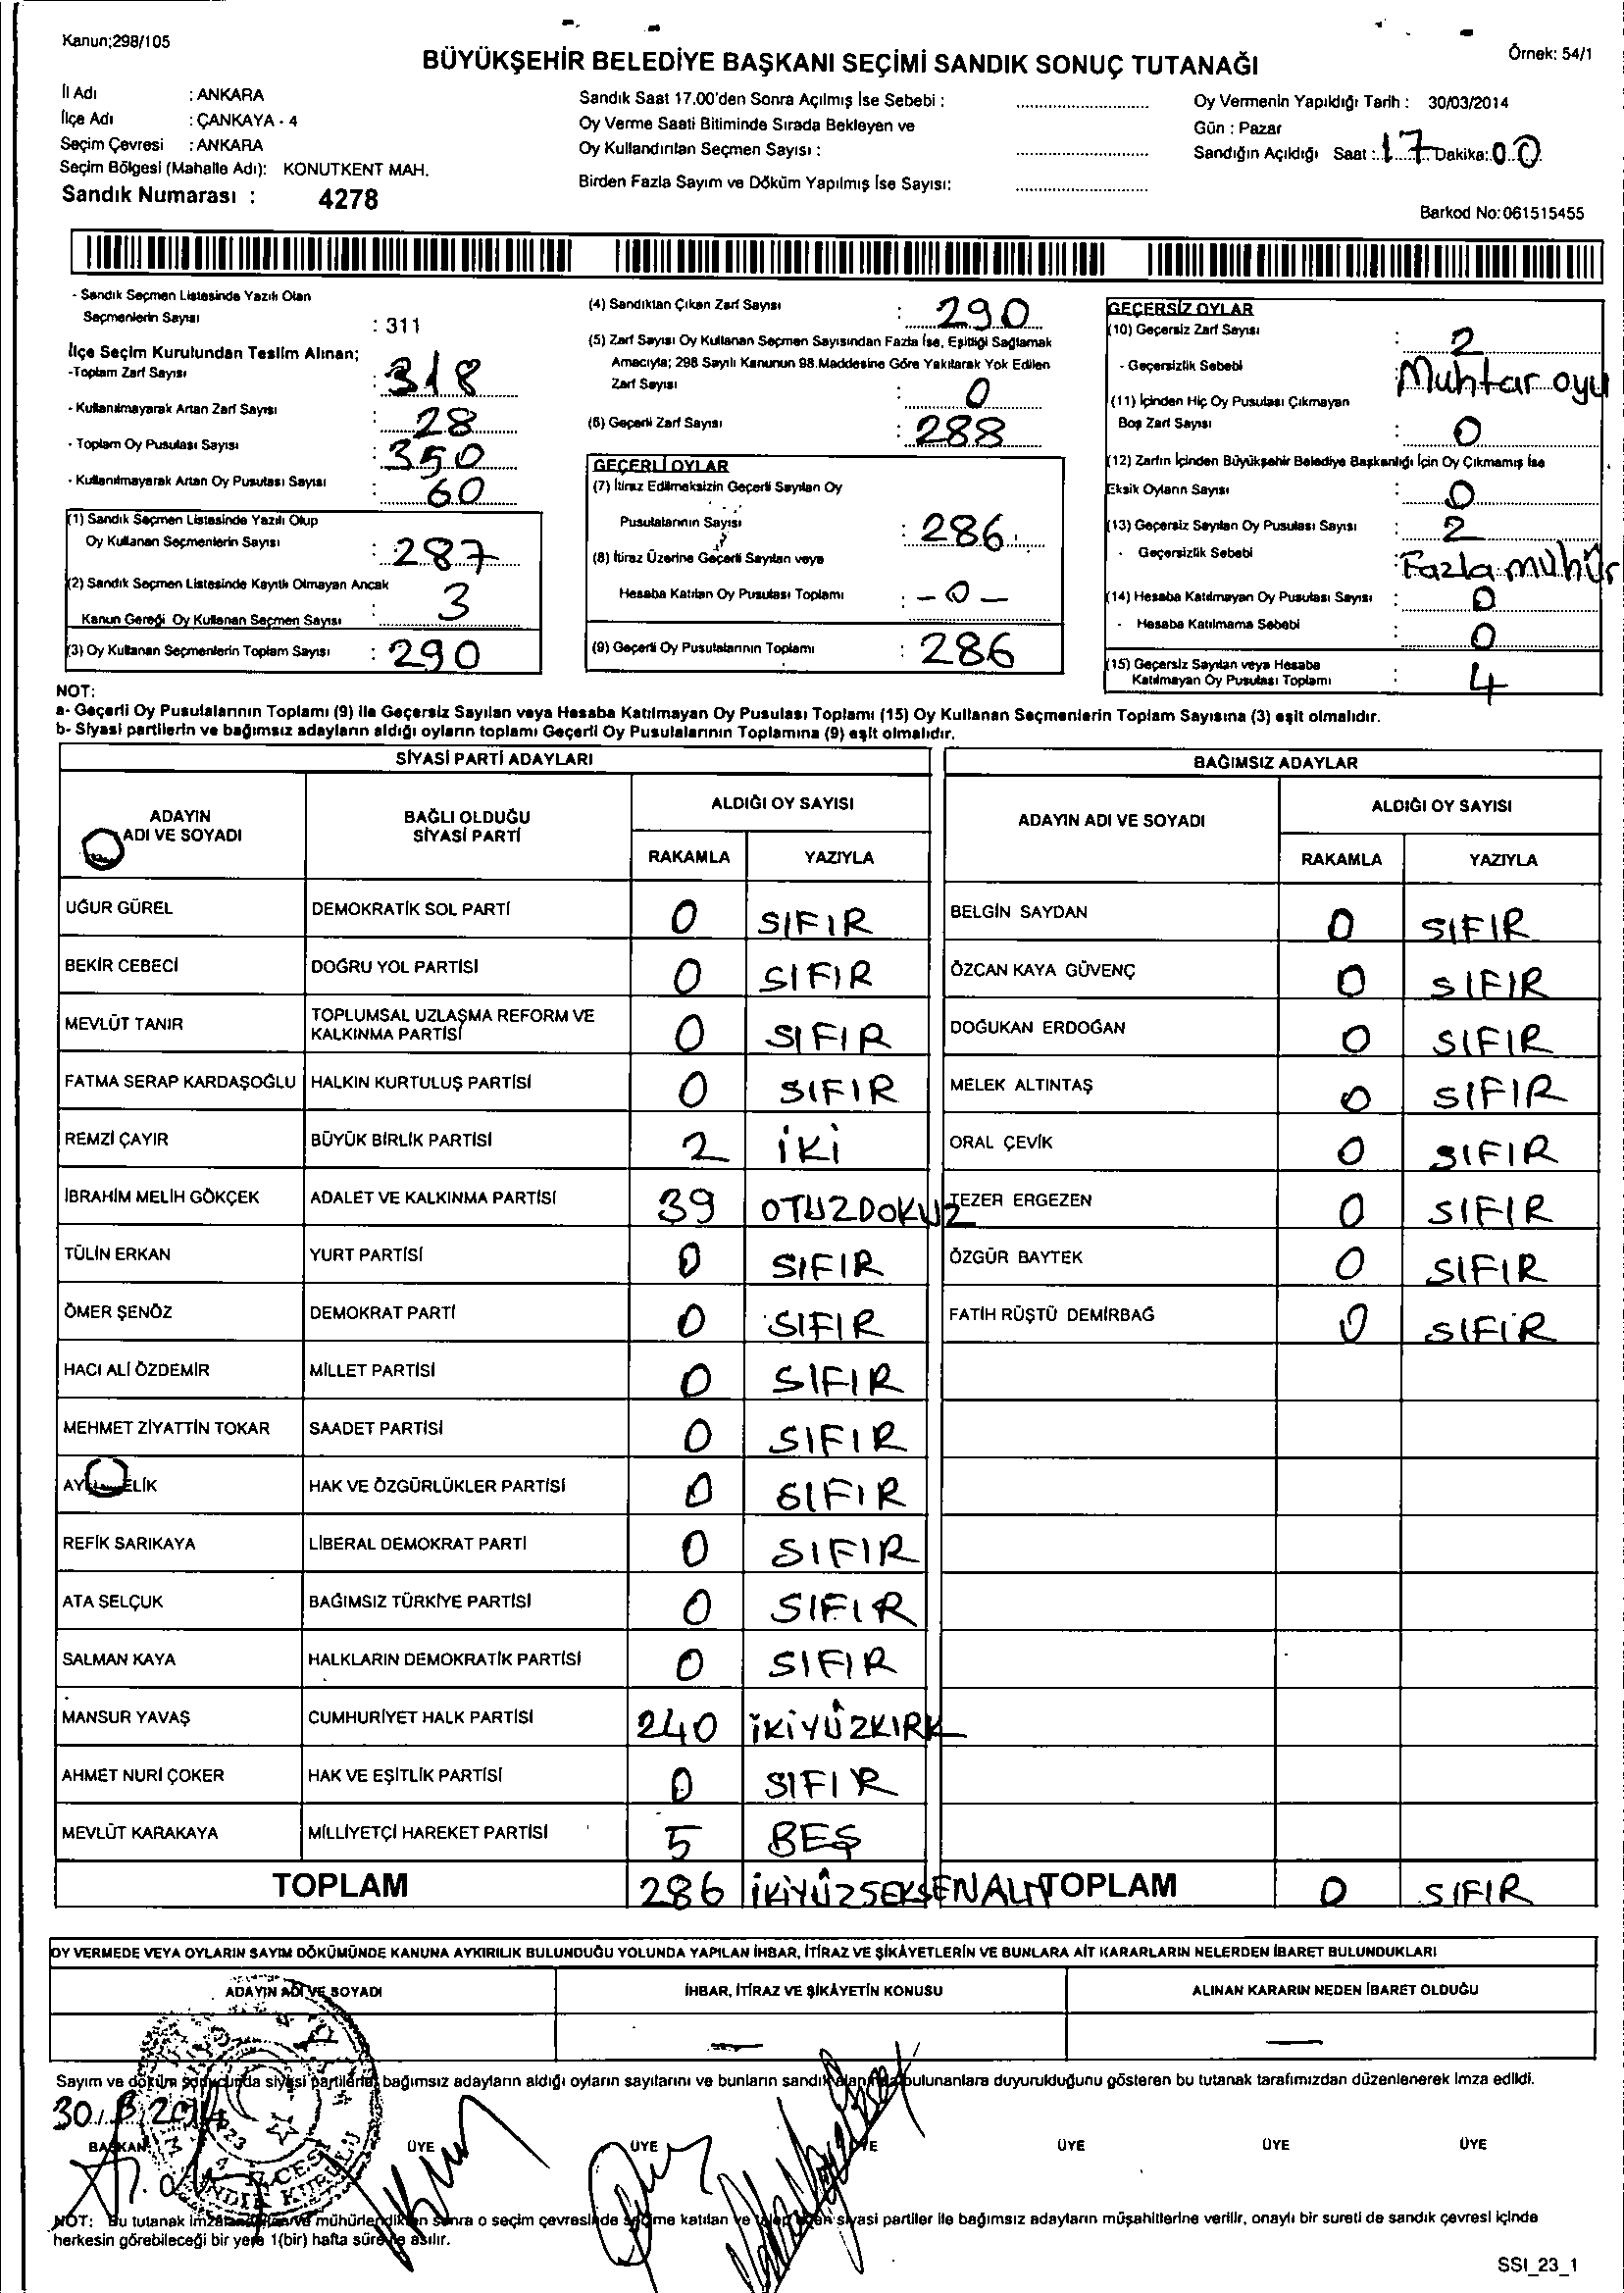 Kanun;298/105
Örnek: 54/1
BÜYÜKŞEHİR BELEDİYE BAŞKANI SEÇİMİ SANDIK SONUÇ TUTANAĞI
İl Adı : ANKARA
İlçe Adı : ÇANKAYA - 4
Seçim Çevresi : ANKARA
Seçim Bölgesi (Mahalle Adı): KONUTKENT MAH.
Sandık Numarası : 4278
Sandık Saat 17.00'den Sonra Açılmış İse Sebebi :
Oy Verme Saati Bitiminde Sırada Bekleyen ve
Oy Kullandırılan Seçmen Sayısı :
Birden Fazla Sayım ve Döküm Yapılmış İse Sayısı:
Oy Vermenin Yapıldığı Tarih : 30/03/2014
Gün : Pazar
Sandığın Açıldığı Saat : 17 Dakika: 00
Barkod No:061515455
- Sandık Seçmen Listesinde Yazılı Olan
Seçmenlerin Sayısı : 311
İlçe Seçim Kurulundan Teslim Alınan;
-Toplam Zarf Sayısı : 318
- Kullanılmayarak Artan Zarf Sayısı : 28
- Toplam Oy Pusulası Sayısı : 350
- Kullanılmayarak Artan Oy Pusulası Sayısı : 60
(1) Sandık Seçmen Listesinde Yazılı Olup
Oy Kullanan Seçmenlerin Sayısı : 287
(2) Sandık Seçmen Listesinde Kayıtlı Olmayan Ancak
Kanun Gereği Oy Kullanan Seçmen Sayısı : 3
(3) Oy Kullanan Seçmenlerin Toplam Sayısı : 290
(4) Sandıktan Çıkan Zarf Sayısı : 290
(5) Zarf Sayısı Oy Kullanan Seçmen Sayısından Fazla İse, Eşitliği Sağlamak
Amacıyla; 298 Sayılı Kanunun 98.Maddesine Göre Yakılarak Yok Edilen
Zarf Sayısı : 0
(6) Geçerli Zarf Sayısı : 288
GEÇERLİ OYLAR
(7) İtiraz Edilmeksizin Geçerli Sayılan Oy
Pusulalarının Sayısı : 286
(8) İtiraz Üzerine Geçerli Sayılan veya
Hesaba Katılan Oy Pusulası Toplamı : - 0 -
(9) Geçerli Oy Pusulalarının Toplamı : 286
GEÇERSİZ OYLAR
(10) Geçersiz Zarf Sayısı : 2
- Geçersizlik Sebebi : Muhtar oyu
(11) İçinden Hiç Oy Pusulası Çıkmayan
Boş Zarf Sayısı : 0
(12) Zarfın İçinden Büyükşehir Belediye Başkanlığı İçin Oy Çıkmamış İse
Eksik Oyların Sayısı : 0
(13) Geçersiz Sayılan Oy Pusulası Sayısı : 2
- Geçersizlik Sebebi : Fazla mühür
(14) Hesaba Katılmayan Oy Pusulası Sayısı : 0
- Hesaba Katılmama Sebebi : 0
(15) Geçersiz Sayılan veya Hesaba
Katılmayan Oy Pusulası Toplamı : 4
NOT:
a- Geçerli Oy Pusulalarının Toplamı (9) ile Geçersiz Sayılan veya Hesaba Katılmayan Oy Pusulası Toplamı (15) Oy Kullanan Seçmenlerin Toplam Sayısına (3) eşit olmalıdır.
b- Siyasi partilerin ve bağımsız adayların aldığı oyların toplamı Geçerli Oy Pusulalarının Toplamına (9) eşit olmalıdır.
SİYASİ PARTİ ADAYLARI
ADAYIN ADI VE SOYADI
BAĞLI OLDUĞU SİYASİ PARTİ
ALDIĞI OY SAYISI
RAKAMLA YAZIYLA
UĞUR GÜREL DEMOKRATİK SOL PARTİ 0 SIFIR
BEKİR CEBECİ DOĞRU YOL PARTİSİ 0 SIFIR
MEVLÜT TANIR TOPLUMSAL UZLAŞMA REFORM VE KALKINMA PARTİSİ 0 SIFIR
FATMA SERAP KARDAŞOĞLU HALKIN KURTULUŞ PARTİSİ 0 SIFIR
REMZİ ÇAYIR BÜYÜK BİRLİK PARTİSİ 2 İKİ
İBRAHİM MELİH GÖKÇEK ADALET VE KALKINMA PARTİSİ 39 OTUZDOKUZ
TÜLİN ERKAN YURT PARTİSİ 0 SIFIR
ÖMER ŞENÖZ DEMOKRAT PARTİ 0 SIFIR
HACI ALİ ÖZDEMİR MİLLET PARTİSİ 0 SIFIR
MEHMET ZİYATTİN TOKAR SAADET PARTİSİ 0 SIFIR
HAK VE ÖZGÜRLÜKLER PARTİSİ 0 SIFIR
REFİK SARIKAYA LİBERAL DEMOKRAT PARTİ 0 SIFIR
ATA SELÇUK BAĞIMSIZ TÜRKİYE PARTİSİ 0 SIFIR
SALMAN KAYA HALKLARIN DEMOKRATİK PARTİSİ 0 SIFIR
MANSUR YAVAŞ CUMHURİYET HALK PARTİSİ 240 İKİYÜZKIRK
AHMET NURİ ÇOKER HAK VE EŞİTLİK PARTİSİ 0 SIFIR
MEVLÜT KARAKAYA MİLLİYETÇİ HAREKET PARTİSİ 5 BEŞ
TOPLAM 286 İKİYÜZSEKSENALTI
BAĞIMSIZ ADAYLAR
ADAYIN ADI VE SOYADI
ALDIĞI OY SAYISI
RAKAMLA YAZIYLA
BELGİN SAYDAN 0 SIFIR
ÖZCAN KAYA GÜVENÇ 0 SIFIR
DOĞUKAN ERDOĞAN 0 SIFIR
MELEK ALTINTAŞ 0 SIFIR
ORAL ÇEVİK 0 SIFIR
TEZER ERGEZEN 0 SIFIR
ÖZGÜR BAYTEK 0 SIFIR
FATİH RÜŞTÜ DEMİRBAĞ 0 SIFIR
TOPLAM 0 SIFIR
OY VERMEDE VEYA OYLARIN SAYIM DÖKÜMÜNDE KANUNA AYKIRILIK BULUNDUĞU YOLUNDA YAPILAN İHBAR, İTİRAZ VE ŞİKÂYETLERİN VE BUNLARA AİT KARARLARIN NELERDEN İBARET BULUNDUKLARI
ADAYIN ADI VE SOYADI
İHBAR, İTİRAZ VE ŞİKÂYETİN KONUSU
ALINAN KARARIN NEDEN İBARET OLDUĞU
Sayım ve döküm sonucunda siyasi partilerin, bağımsız adayların aldığı oyların sayılarını ve bunların sandık bulunanlara duyurulduğunu gösteren bu tutanak tarafımızdan düzenlenerek imza edildi.
30.3.2014
BAŞKAN ÜYE ÜYE ÜYE ÜYE ÜYE ÜYE
NOT: Bu tutanak ve mühürlendikten sonra o seçim çevresinde seçime katılan ve siyasi partiler ile bağımsız adayların müşahitlerine verilir, onaylı bir sureti de sandık çevresi içinde
herkesin görebileceği bir yere 1(bir) hafta süreyle asılır.
SSI_23_1